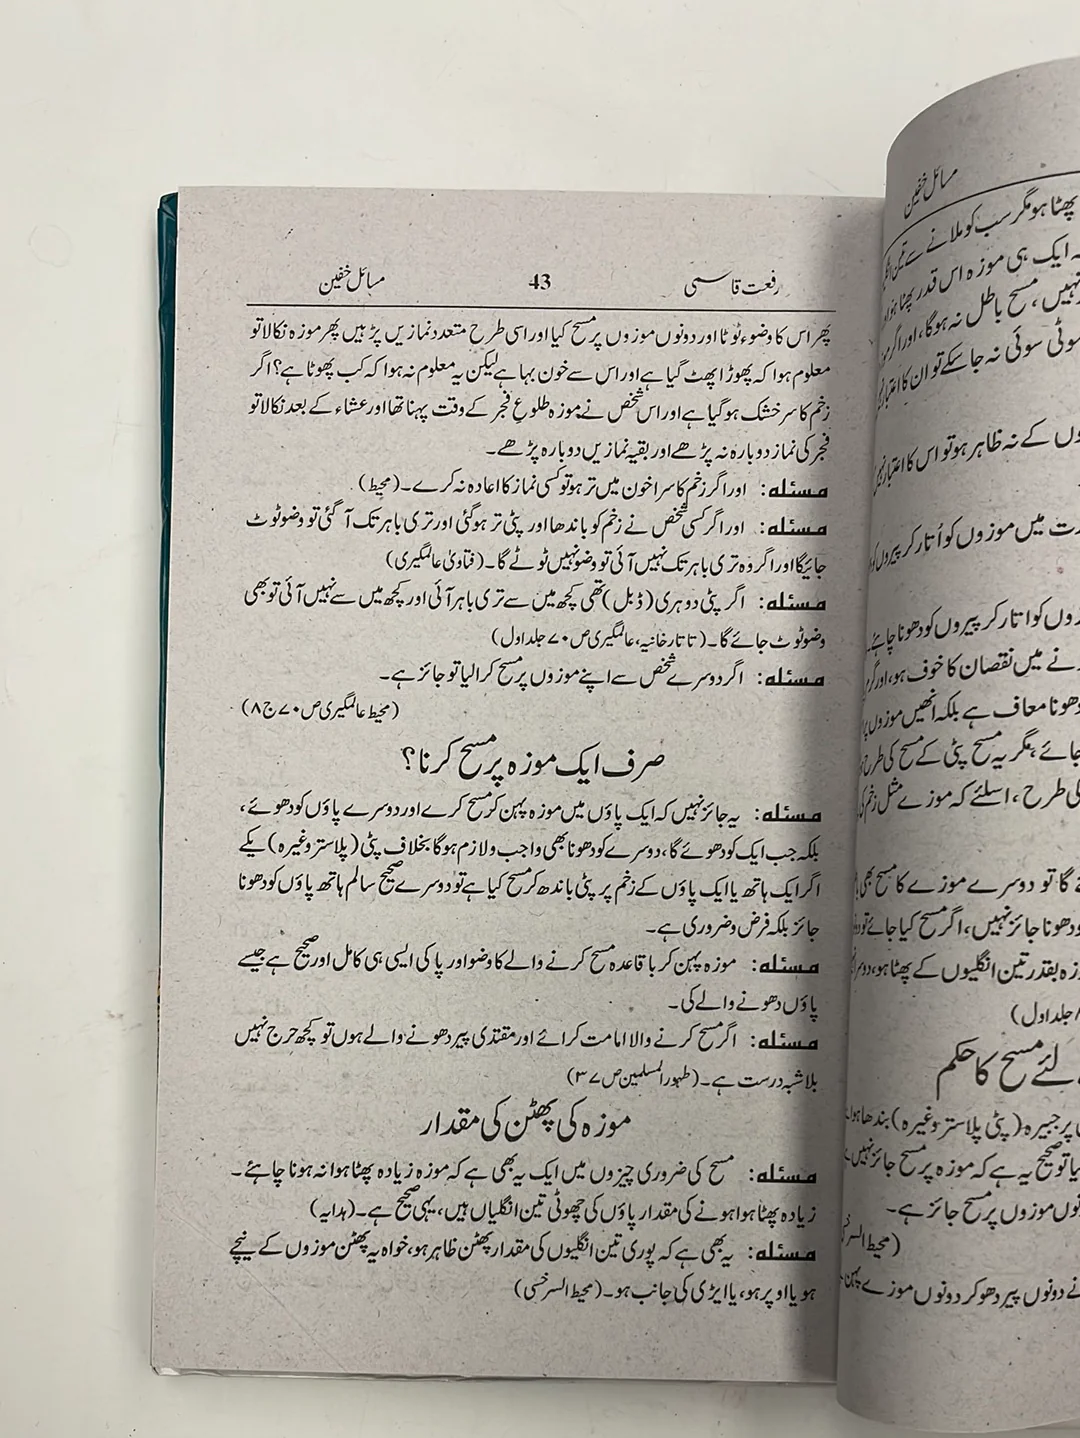 رفعت قاسمی 43 مسائل خفین
پھر اس کا وضوء ٹوٹا اور دونوں موزوں پر مسح کیا اور اسی طرح متعدد نمازیں پڑہیں پھر موزہ نکالا تو
معلوم ہوا کہ پھوڑا پھٹ گیا ہے اور اس سے خون بہا ہے لیکن یہ معلوم نہ ہوا کہ کب پھوٹا ہے؟ اگر
زخم کا سر خشک ہو گیا ہے اور اس شخص نے موزہ طلوعِ فجر کے وقت پہنا تھا اور عشاء کے بعد نکالا تو
فجر کی نماز دوبارہ نہ پڑھے اور بقیہ نمازیں دوبارہ پڑھے۔
مسئلہ: اور اگر زخم کا سرا خون میں تر ہو تو کسی نماز کا اعادہ نہ کرے۔ (محیط)
مسئلہ: اور اگر کسی شخص نے زخم کو باندھا اور پٹی تر ہو گئی اور تری باہر تک آ گئی تو وضو ٹوٹ
جائیگا اور اگر وہ تری باہر تک نہیں آئی تو وضو نہیں ٹوٹے گا۔ (فتاویٰ عالمگیری)
مسئلہ: اگر پٹی دوہری (ڈبل) تھی کچھ میں سے تری باہر آئی اور کچھ میں سے نہیں آئی تو بھی
وضو ٹوٹ جائے گا۔ (تاتارخانیہ، عالمگیری ص ۷۰ جلد اول)
مسئلہ: اگر دوسرے شخص سے اپنے موزوں پر مسح کرالیا تو جائز ہے۔
(محیط عالمگیری ص ۷۰ ج ۸)
صرف ایک موزہ پر مسح کرنا؟
مسئلہ: یہ جائز نہیں کہ ایک پاؤں میں موزہ پہن کر مسح کرے اور دوسرے پاؤں کو دھوئے،
بلکہ جب ایک کو دھوئے گا، دوسرے کو دھونا بھی واجب و لازم ہوگا بخلاف پٹی (پلاستر وغیرہ) کے
اگر ایک ہاتھ یا ایک پاؤں کے زخم پر پٹی باندھ کر مسح کیا ہے تو دوسرے صحیح سالم ہاتھ پاؤں کو دھونا
جائز بلکہ فرض و ضروری ہے۔
مسئلہ: موزہ پہن کر باقاعدہ مسح کرنے والے کا وضو اور پاکی ایسی ہی کامل اور صحیح ہے جیسے
پاؤں دھونے والے کی۔
مسئلہ: اگر مسح کرنے والا امامت کرائے اور مقتدی پیر دھونے والے ہوں تو کچھ حرج نہیں
بلاشبہ درست ہے۔ (طہور المسلمین ص ۳۷)
موزہ کی پھٹن کی مقدار
مسئلہ: مسح کی ضروری چیزوں میں ایک یہ بھی ہے کہ موزہ زیادہ پھٹا ہوا نہ ہونا چاہئے۔
زیادہ پھٹا ہوا ہونے کی مقدار پاؤں کی چھوٹی تین انگلیاں ہیں، یہی صحیح ہے۔ (ہدایہ)
مسئلہ: یہ بھی ہے کہ پوری تین انگلیوں کی مقدار پھٹن ظاہر ہو، خواہ یہ پھٹن موزوں کے نیچے
ہو یا اوپر ہو، یا ایڑی کی جانب ہو۔ (محیط السرخسی)
مسائل خفین
پھٹا ہو مگر سب کو ملانے سے تین
ایک ہی موزہ اس قدر پھٹا ہوا ہو
نہیں، مسح باطل نہ ہوگا، اور اگر
سوئی نہ جا سکے تو ان کا اعتبار
کے نہ ظاہر ہو تو اس کا اعتبار نہیں
میں موزوں کو اُتار کر پیروں کو
کو اتار کر پیروں کو دھونا چاہئے۔
نے میں نقصان کا خوف ہو، اور
دھونا معاف ہے بلکہ انھیں موزوں پر
جائے، مگر یہ مسح پٹی کے مسح کی طرح
کی طرح، اسلئے کہ موزے مثل زخم کی
گا تو دوسرے موزے کا مسح بھی
دھونا جائز نہیں، اگر مسح کیا جائے تو
بقدر تین انگلیوں کے پھٹا ہو،
جلد اول)
لئے مسح کا حکم
پر جبیرہ (پٹی پلاستر وغیرہ) بندھا ہو
تو صحیح یہ ہے کہ موزہ پر مسح جائز نہیں
موزوں پر مسح جائز ہے۔
(محیط
نے دونوں پیر دھو کر دونوں موزے پہن